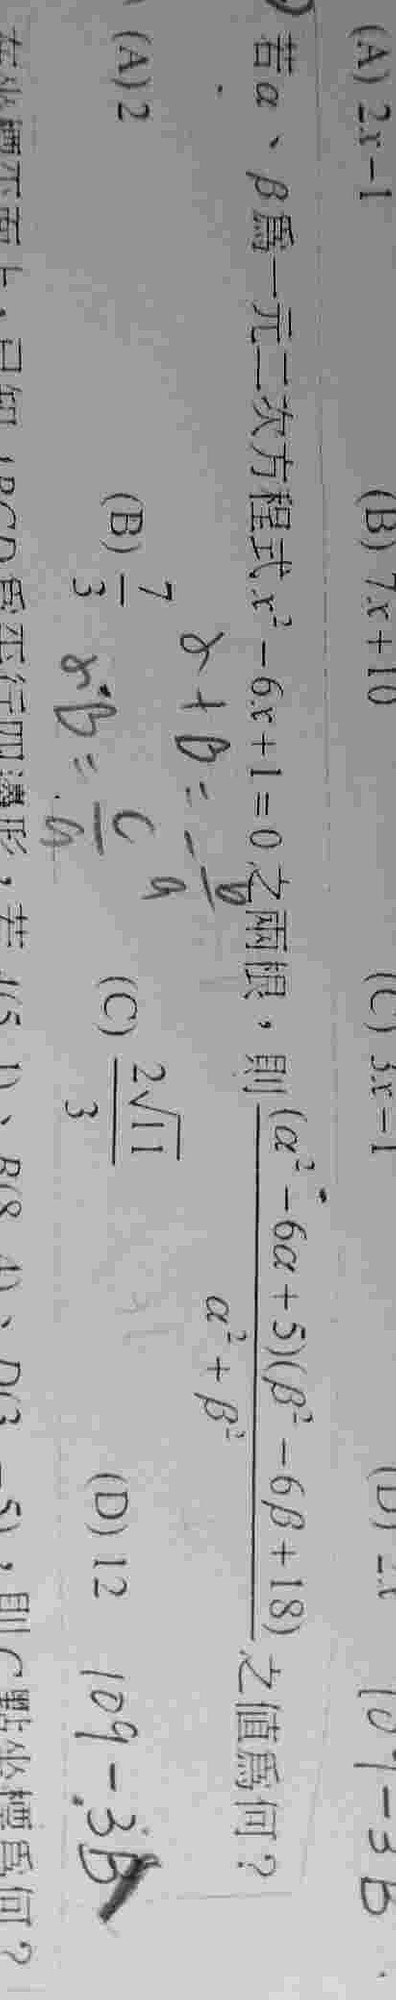 (A) 2x−1 (B) 7x+10 (C) 3x−1 (D)
109-3B
若α、β為一元二次方程式x²−6x+1=0之兩根，則(α²−6α+5)(β²−6β+18)/(α²+β²)之值為何？
α+β=−b/a
(A) 2 (B) 7/3 (C) 2√11/3 (D) 12
α·β=c/a
109-3B
在坐標平面上，已知ABCD為平行四邊形，若A(5,1)、B(8,4)、D(3,−5)，則C點坐標為何？